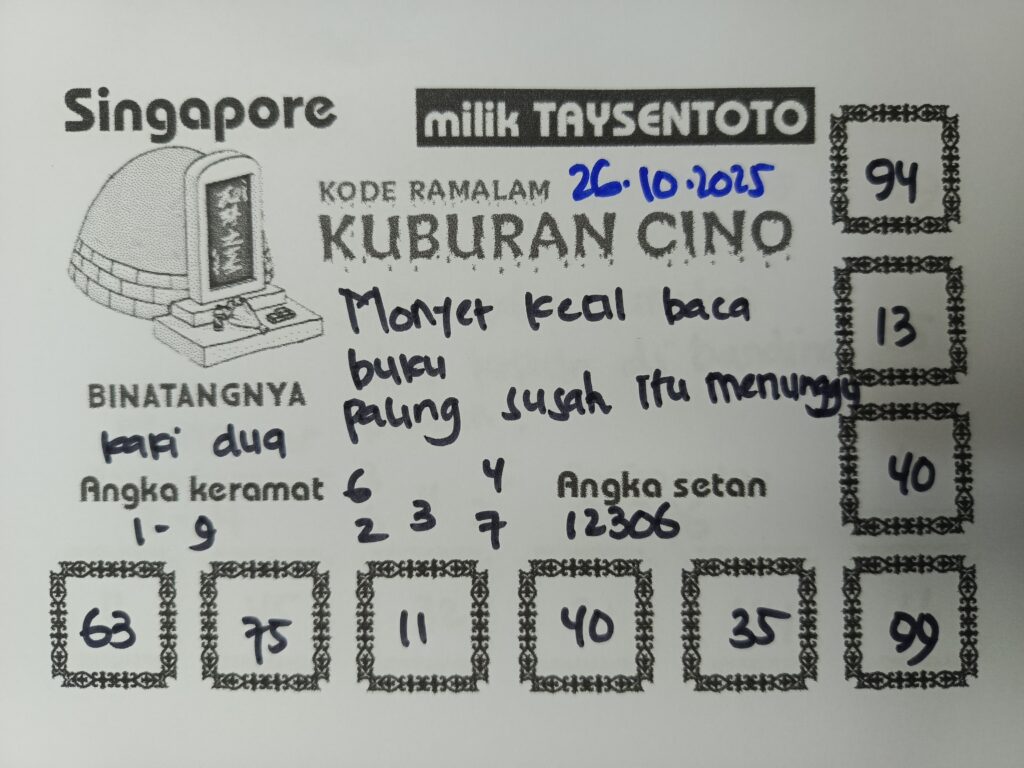 Singapore
milik TAYSENTOTO
KODE RAMALAM 26.10.2025
KUBURAN CINO
Monyet kecil baca
buku
paling susah itu menunggu
BINATANGNYA
kaki dua
Angka keramat
1-9
6 4
2 3 7
Angka setan
12306
94
13
40
63 75 11 40 35 99